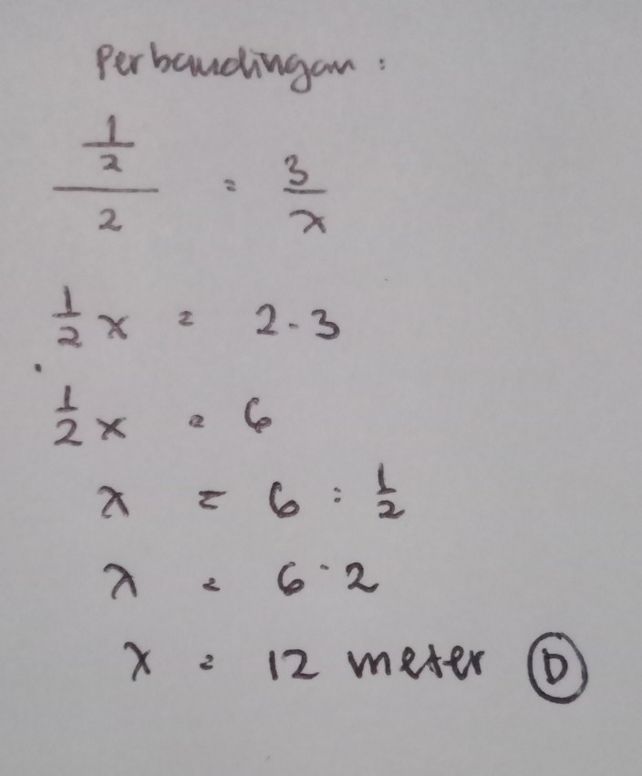 Perbandingan :
1/2 / 2 = 3/x
1/2 x = 2 . 3
1/2 x = 6
x = 6 : 1/2
x = 6 . 2
x = 12 meter D